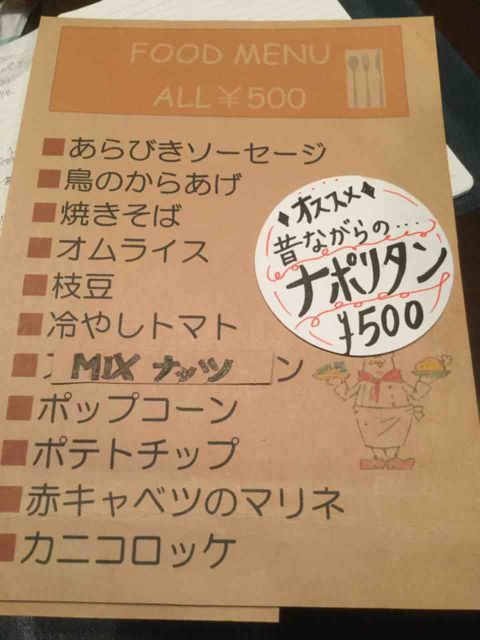 FOOD MENU
ALL ¥500
■あらびきソーセージ
■鳥のからあげ
■焼きそば
■オムライス
■枝豆
■冷やしトマト
■MIX ナッツ ン
■ポップコーン
■ポテトチップ
■赤キャベツのマリネ
■カニコロッケ
♦オススメ♦
昔ながらの...
ナポリタン
¥500